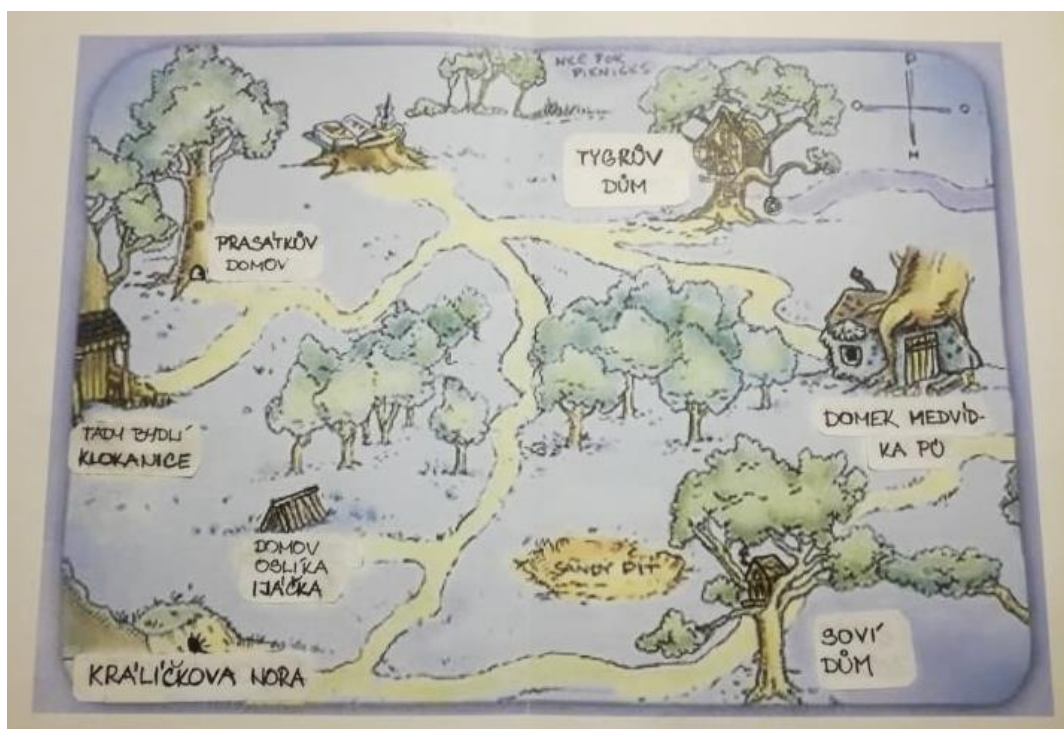 NICE FOR
PIKNICKS
P
O O
H
TYGRŮV
DŮM
PRASÁTKŮV
DOMOV
TADY BYDLÍ
KLOKANICE
DOMEK MEDVÍD-
KA PÚ
DOMOV
OSLÍKA
IJÁČKA
SANDY PIT
SOVÍ
DŮM
KRÁLÍČKOVA NORA